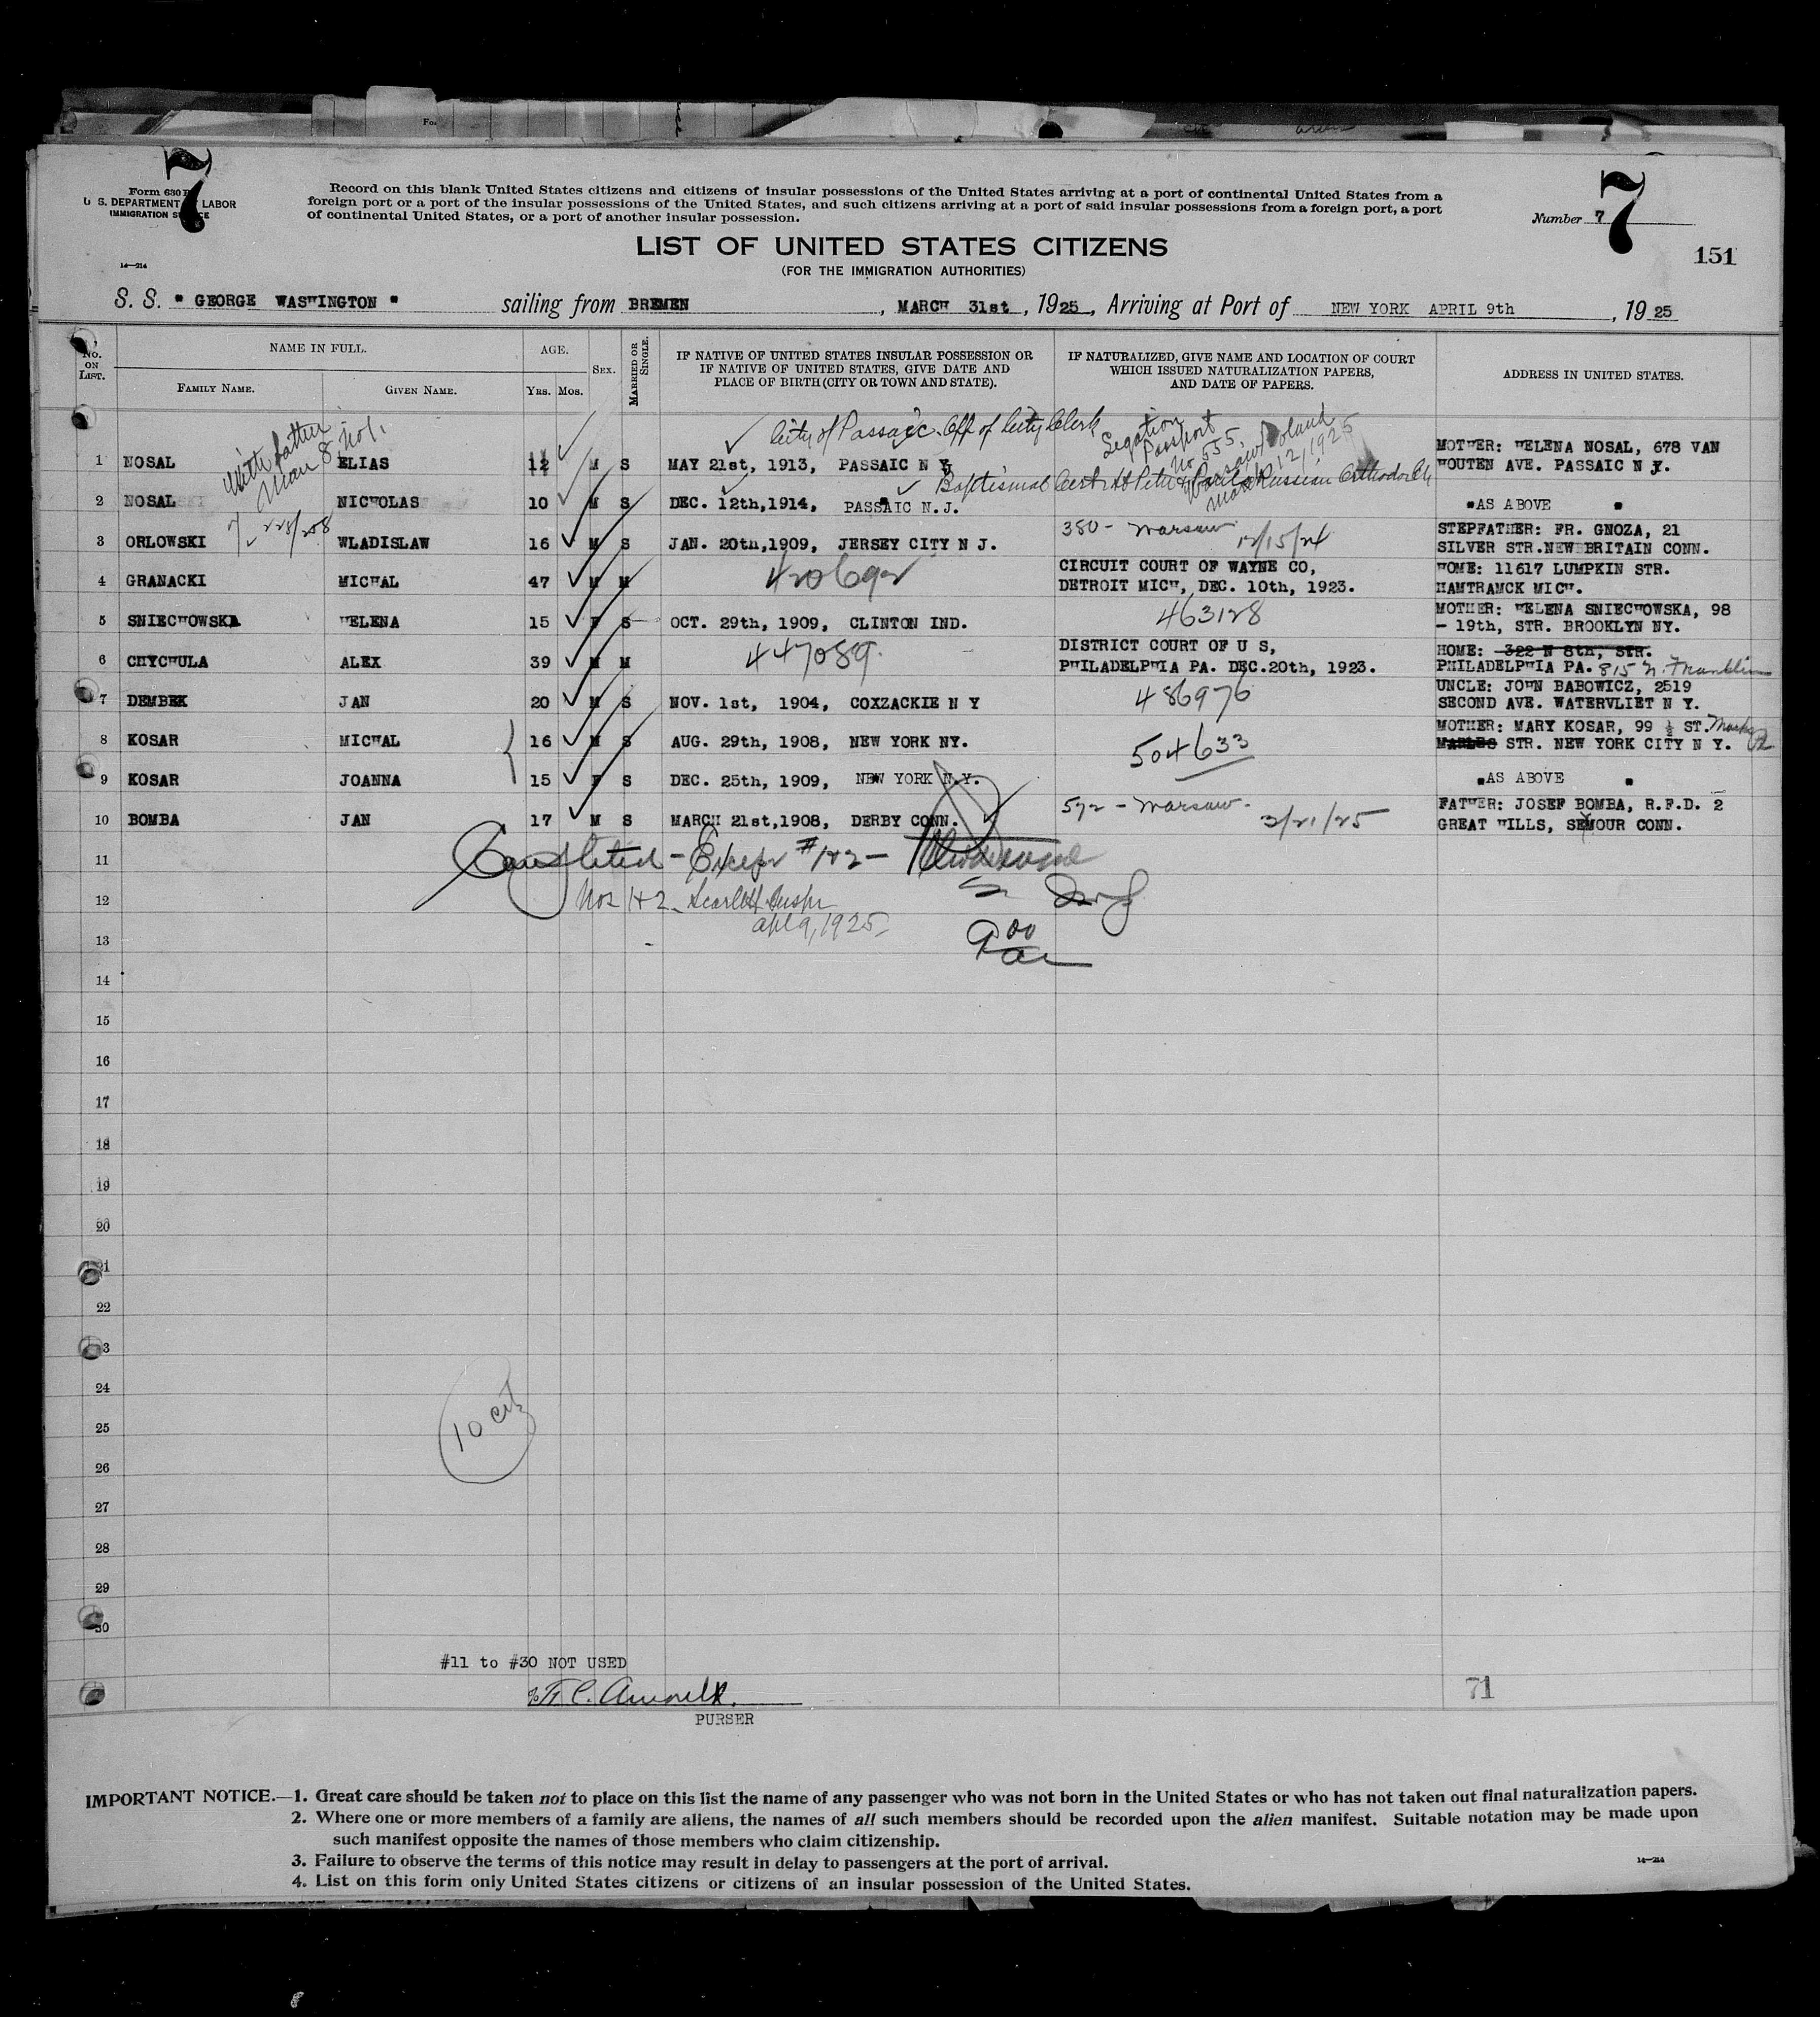 7
7
Form 630 B
U. S. DEPARTMENT OF LABOR
IMMIGRATION SERVICE
Record on this blank United States citizens and citizens of insular possessions of the United States arriving at a port of continental United States from a
foreign port or a port of the insular possessions of the United States, and such citizens arriving at a port of said insular possessions from a foreign port, a port
of continental United States, or a port of another insular possession.
Number 7
LIST OF UNITED STATES CITIZENS
151
(FOR THE IMMIGRATION AUTHORITIES)
14—214
S. S. " GEORGE WASHINGTON " sailing from BREMEN , MARCH 31st , 1925 , Arriving at Port of NEW YORK APRIL 9th , 19 25
No. ON LIST.
NAME IN FULL.
FAMILY NAME.
GIVEN NAME.
AGE.
YRS. MOS.
SEX.
MARRIED OR SINGLE.
IF NATIVE OF UNITED STATES INSULAR POSSESSION OR
IF NATIVE OF UNITED STATES, GIVE DATE AND
PLACE OF BIRTH (CITY OR TOWN AND STATE).
IF NATURALIZED, GIVE NAME AND LOCATION OF COURT
WHICH ISSUED NATURALIZATION PAPERS,
AND DATE OF PAPERS.
ADDRESS IN UNITED STATES.
With father
Man 8, No 1,
City of Passaic Off of City Clerk
Legation
Passport
No 555,
Warsaw Poland
March 12/1925
1 NOSAL ELIAS 12 M S MAY 21st, 1913, PASSAIC N Y. MOTHER: HELENA NOSAL, 678 VAN
HOUTEN AVE. PASSAIC N Y.
Baptismal Cert St Peter & Paul Russian Orthodox Ch
2 NOSAL NICHOLAS 10 M S DEC. 12th,1914, PASSAIC N.J. "AS ABOVE "
228/208
3 ORLOWSKI WLADISLAW 16 M S JAN. 20th,1909, JERSEY CITY N J. 380 - Warsaw 12/15/24 STEPFATHER: FR. GNOZA, 21
SILVER STR.NEW BRITAIN CONN.
4 GRANACKI MICHAL 47 M M 420692 CIRCUIT COURT OF WAYNE CO,
DETROIT MICH, DEC. 10th, 1923. HOME: 11617 LUMPKIN STR.
HAMTRAMCK MICH.
5 SNIECHOWSKA HELENA 15 F S OCT. 29th, 1909, CLINTON IND. 463128 MOTHER: HELENA SNIECHOWSKA, 98
- 19th, STR. BROOKLYN NY.
6 CHYCHULA ALEX 39 M M 447089. DISTRICT COURT OF U S,
PHILADELPHIA PA. DEC.20th, 1923. HOME: 322 N 8th, STR.
PHILADELPHIA PA. 815 N. Franklin
7 DEMBEK JAN 20 M S NOV. 1st, 1904, COXZACKIE N Y 486976 UNCLE: JOHN BABOWICZ, 2519
SECOND AVE. WATERVLIET N Y.
8 KOSAR MICHAL 16 M S AUG. 29th, 1908, NEW YORK NY. 504633 MOTHER: MARY KOSAR, 99 ½ ST. Marks
STR. NEW YORK CITY N Y. Pl
9 KOSAR JOANNA 15 F S DEC. 25th, 1909, NEW YORK N.Y. "AS ABOVE "
10 BOMBA JAN 17 M S MARCH 21st,1908, DERBY CONN. 572 - Warsaw - 3/21/25 FATHER: JOSEF BOMBA, R.F.D. 2
GREAT HILLS, SEYMOUR CONN.
11 Completed - Except #1+2 -
12 Nos 1+2 Scarlett Inspr
Apl 9, 1925
13 9 00 am
14
15
16
17
18
19
20
21
22
23
24
25
26
27
28
29
30
10 cit
#11 to #30 NOT USED
71
PURSER
IMPORTANT NOTICE.—1. Great care should be taken not to place on this list the name of any passenger who was not born in the United States or who has not taken out final naturalization papers.
2. Where one or more members of a family are aliens, the names of all such members should be recorded upon the alien manifest. Suitable notation may be made upon
such manifest opposite the names of those members who claim citizenship.
3. Failure to observe the terms of this notice may result in delay to passengers at the port of arrival.
4. List on this form only United States citizens or citizens of an insular possession of the United States.
14—214